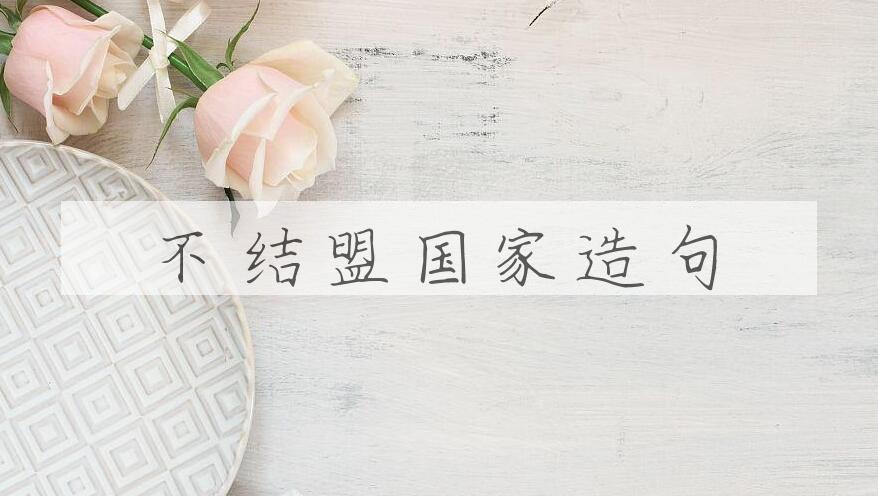 不结盟国家造句